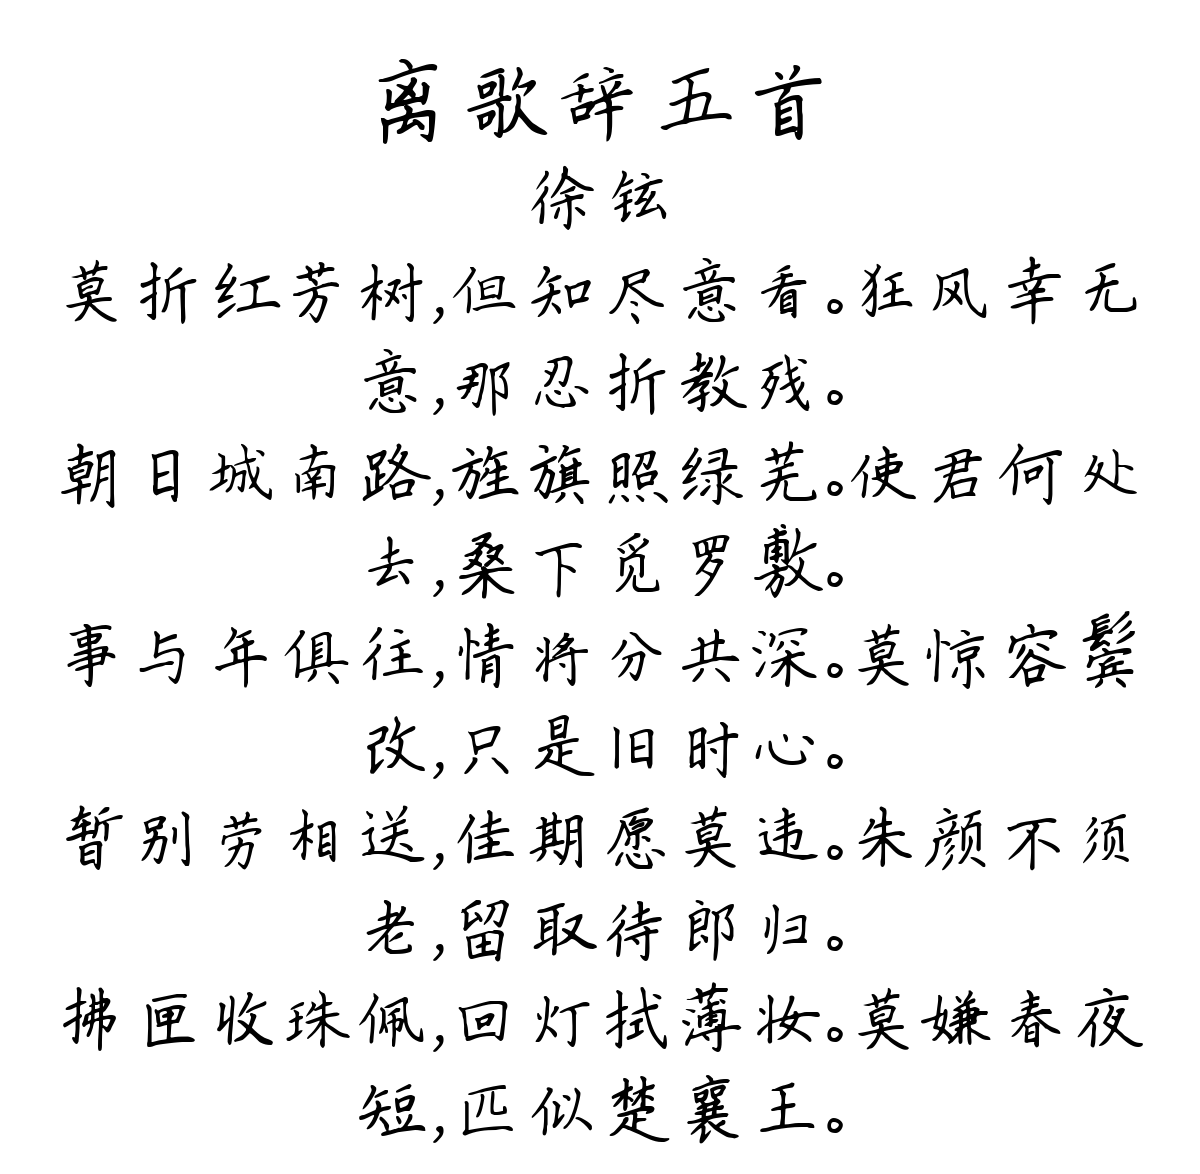 离歌辞五首
徐铉
莫折红芳树,但知尽意看。狂风幸无
意,那忍折教残。
朝日城南路,旌旗照绿芜。使君何处
去,桑下觅罗敷。
事与年俱往,情将分共深。莫惊容鬓
改,只是旧时心。
暂别劳相送,佳期愿莫违。朱颜不须
老,留取待郎归。
拂匣收珠佩,回灯拭薄妆。莫嫌春夜
短,匹似楚襄王。